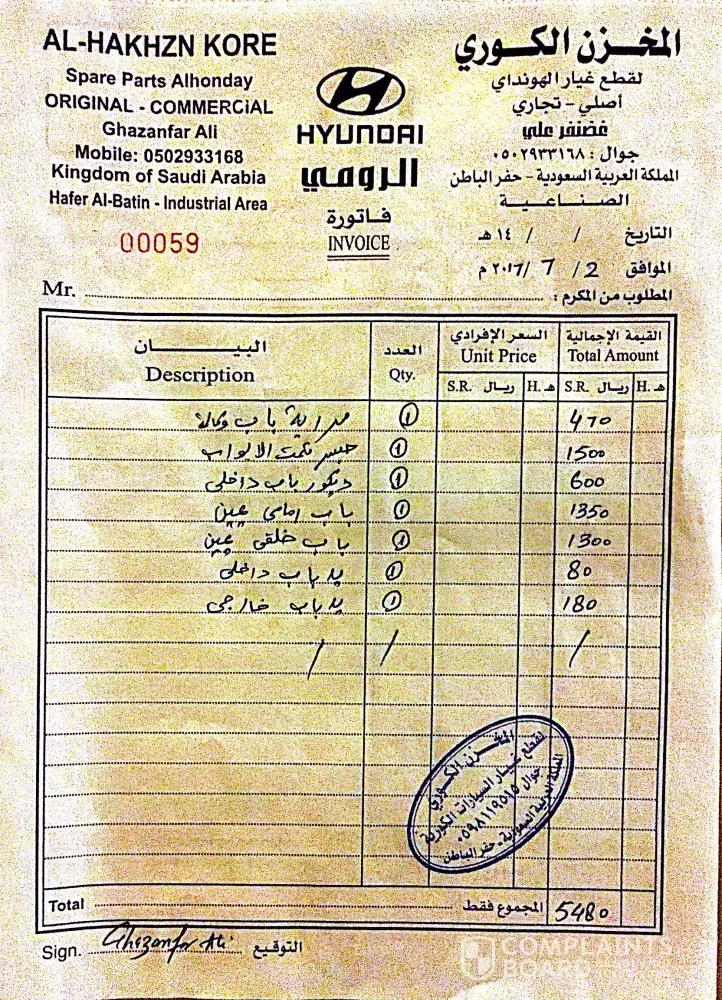 AL-HAKHZN KORE
Spare Parts Alhonday
ORIGINAL - COMMERCiAL
Ghazanfar Ali
Mobile: 0502933168
Kingdom of Saudi Arabia
Hafer Al-Batin - Industrial Area
00059
HYUNDAI
الرومي
فاتورة
INVOICE
المخزن الكوري
لقطع غيار الهونداي
أصلي - تجاري
غضنفر علي
جوال : ٠٥٠٢٩٣٣١٦٨
المملكة العربية السعودية - حفر الباطن
الصناعية
التاريخ / / ١٤ هـ
الموافق 2 / 7 / ٢٠١7 م
Mr. المطلوب من المكرم :
البيان العدد السعر الإفرادي القيمة الإجمالية
Description Qty. Unit Price Total Amount
S.R. ريال H. هـ S.R. ريال H. هـ
باب وكالة 1 470
الابواب 1 1500
ديكور باب داخلي 1 600
باب امامي يمين 1 1350
باب خلفي يمين 1 1300
يد باب داخلي 1 80
يد باب خارجي 1 180
/ / /
المخزن الكوري
لقطع غيار السيارات الكورية
جوال ٠٥٩٨١١٩٥١٥
المملكة العربية السعودية - حفر الباطن
Total المجموع فقط 5480
Sign. Ghazanfar Ali التوقيع
COMPLAINTS
BOARD